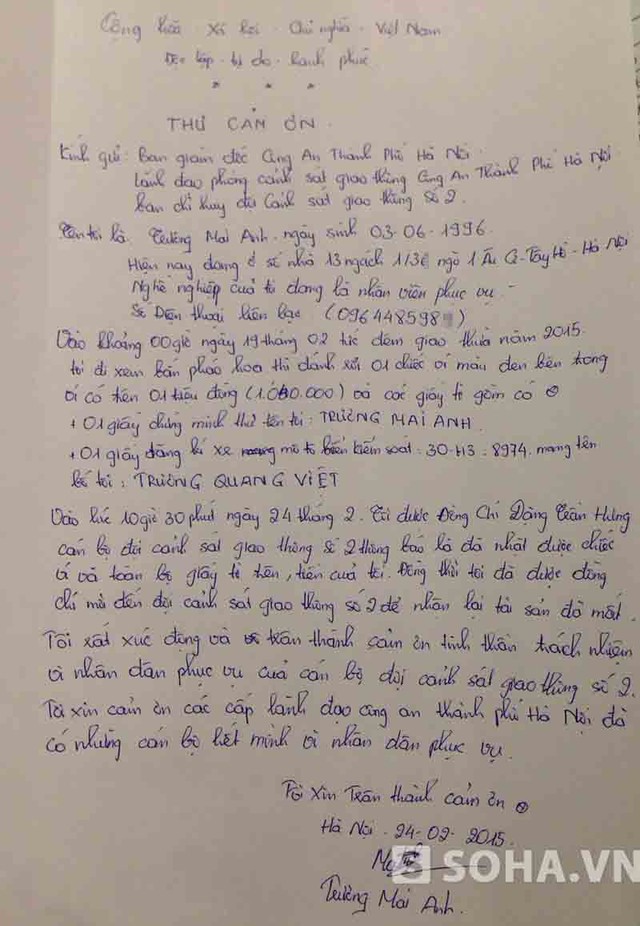 Cộng hòa - Xã hội - Chủ nghĩa - Việt Nam
Độc lập - tự do - hạnh phúc
* * *
THƯ CẢM ƠN.
Kính gửi: Ban giám đốc Công An Thành Phố Hà Nội.
Lãnh đạo phòng cảnh sát giao thông Công An Thành Phố Hà Nội
ban chỉ huy đội Cảnh sát giao thông số 2.
Tên tôi là: Trương Mai Anh. ngày sinh 03-06-1996.
Hiện nay đang ở số nhà 13 ngách 1/3E ngõ 1 Âu Cơ-Tây Hồ-Hà Nội
Nghề nghiệp của tôi đang là nhân viên phục vụ.
Số Điện thoại liên lạc (096448598)
Vào khoảng 00giờ ngày 19 tháng 02 tức đêm giao thừa năm 2015.
tôi đi xem bắn pháo hoa thì đánh rơi 01 chiếc ví màu đen bên trong
ví có tiền 01 triệu đồng (1.000.000) và các giấy tờ gồm có
+ 01 giấy chứng minh thư tên tôi: TRƯƠNG MAI ANH.
+ 01 giấy đăng kí xe mô tô biển kiểm soát: 30-H3: 8974. mang tên
bố tôi: TRƯƠNG QUANG VIỆT
Vào lúc 10giờ 30 phút ngày 24 tháng 2. Tôi được Đồng Chí Đặng Trần Hưng
cán bộ đội cảnh sát giao thông số 2 thông báo là đã nhặt được chiếc
ví và toàn bộ giấy tờ trên, tiền của tôi. Đồng thời tôi đã được đồng
chí mời đến đội cảnh sát giao thông số 2 để nhận lại tài sản đã mất.
Tôi rất xúc động và trân thành cảm ơn tinh thần trách nhiệm
vì nhân dân phục vụ của cán bộ đội cảnh sát giao thông số 2.
Tôi xin cảm ơn các cấp lãnh đạo công an thành phố Hà Nội đã
có những cán bộ hết mình vì nhân dân phục vụ.
Tôi Xin Trân thành cảm ơn
Hà Nội. 24-02-2015.
Trương Mai Anh.
SOHA.VN